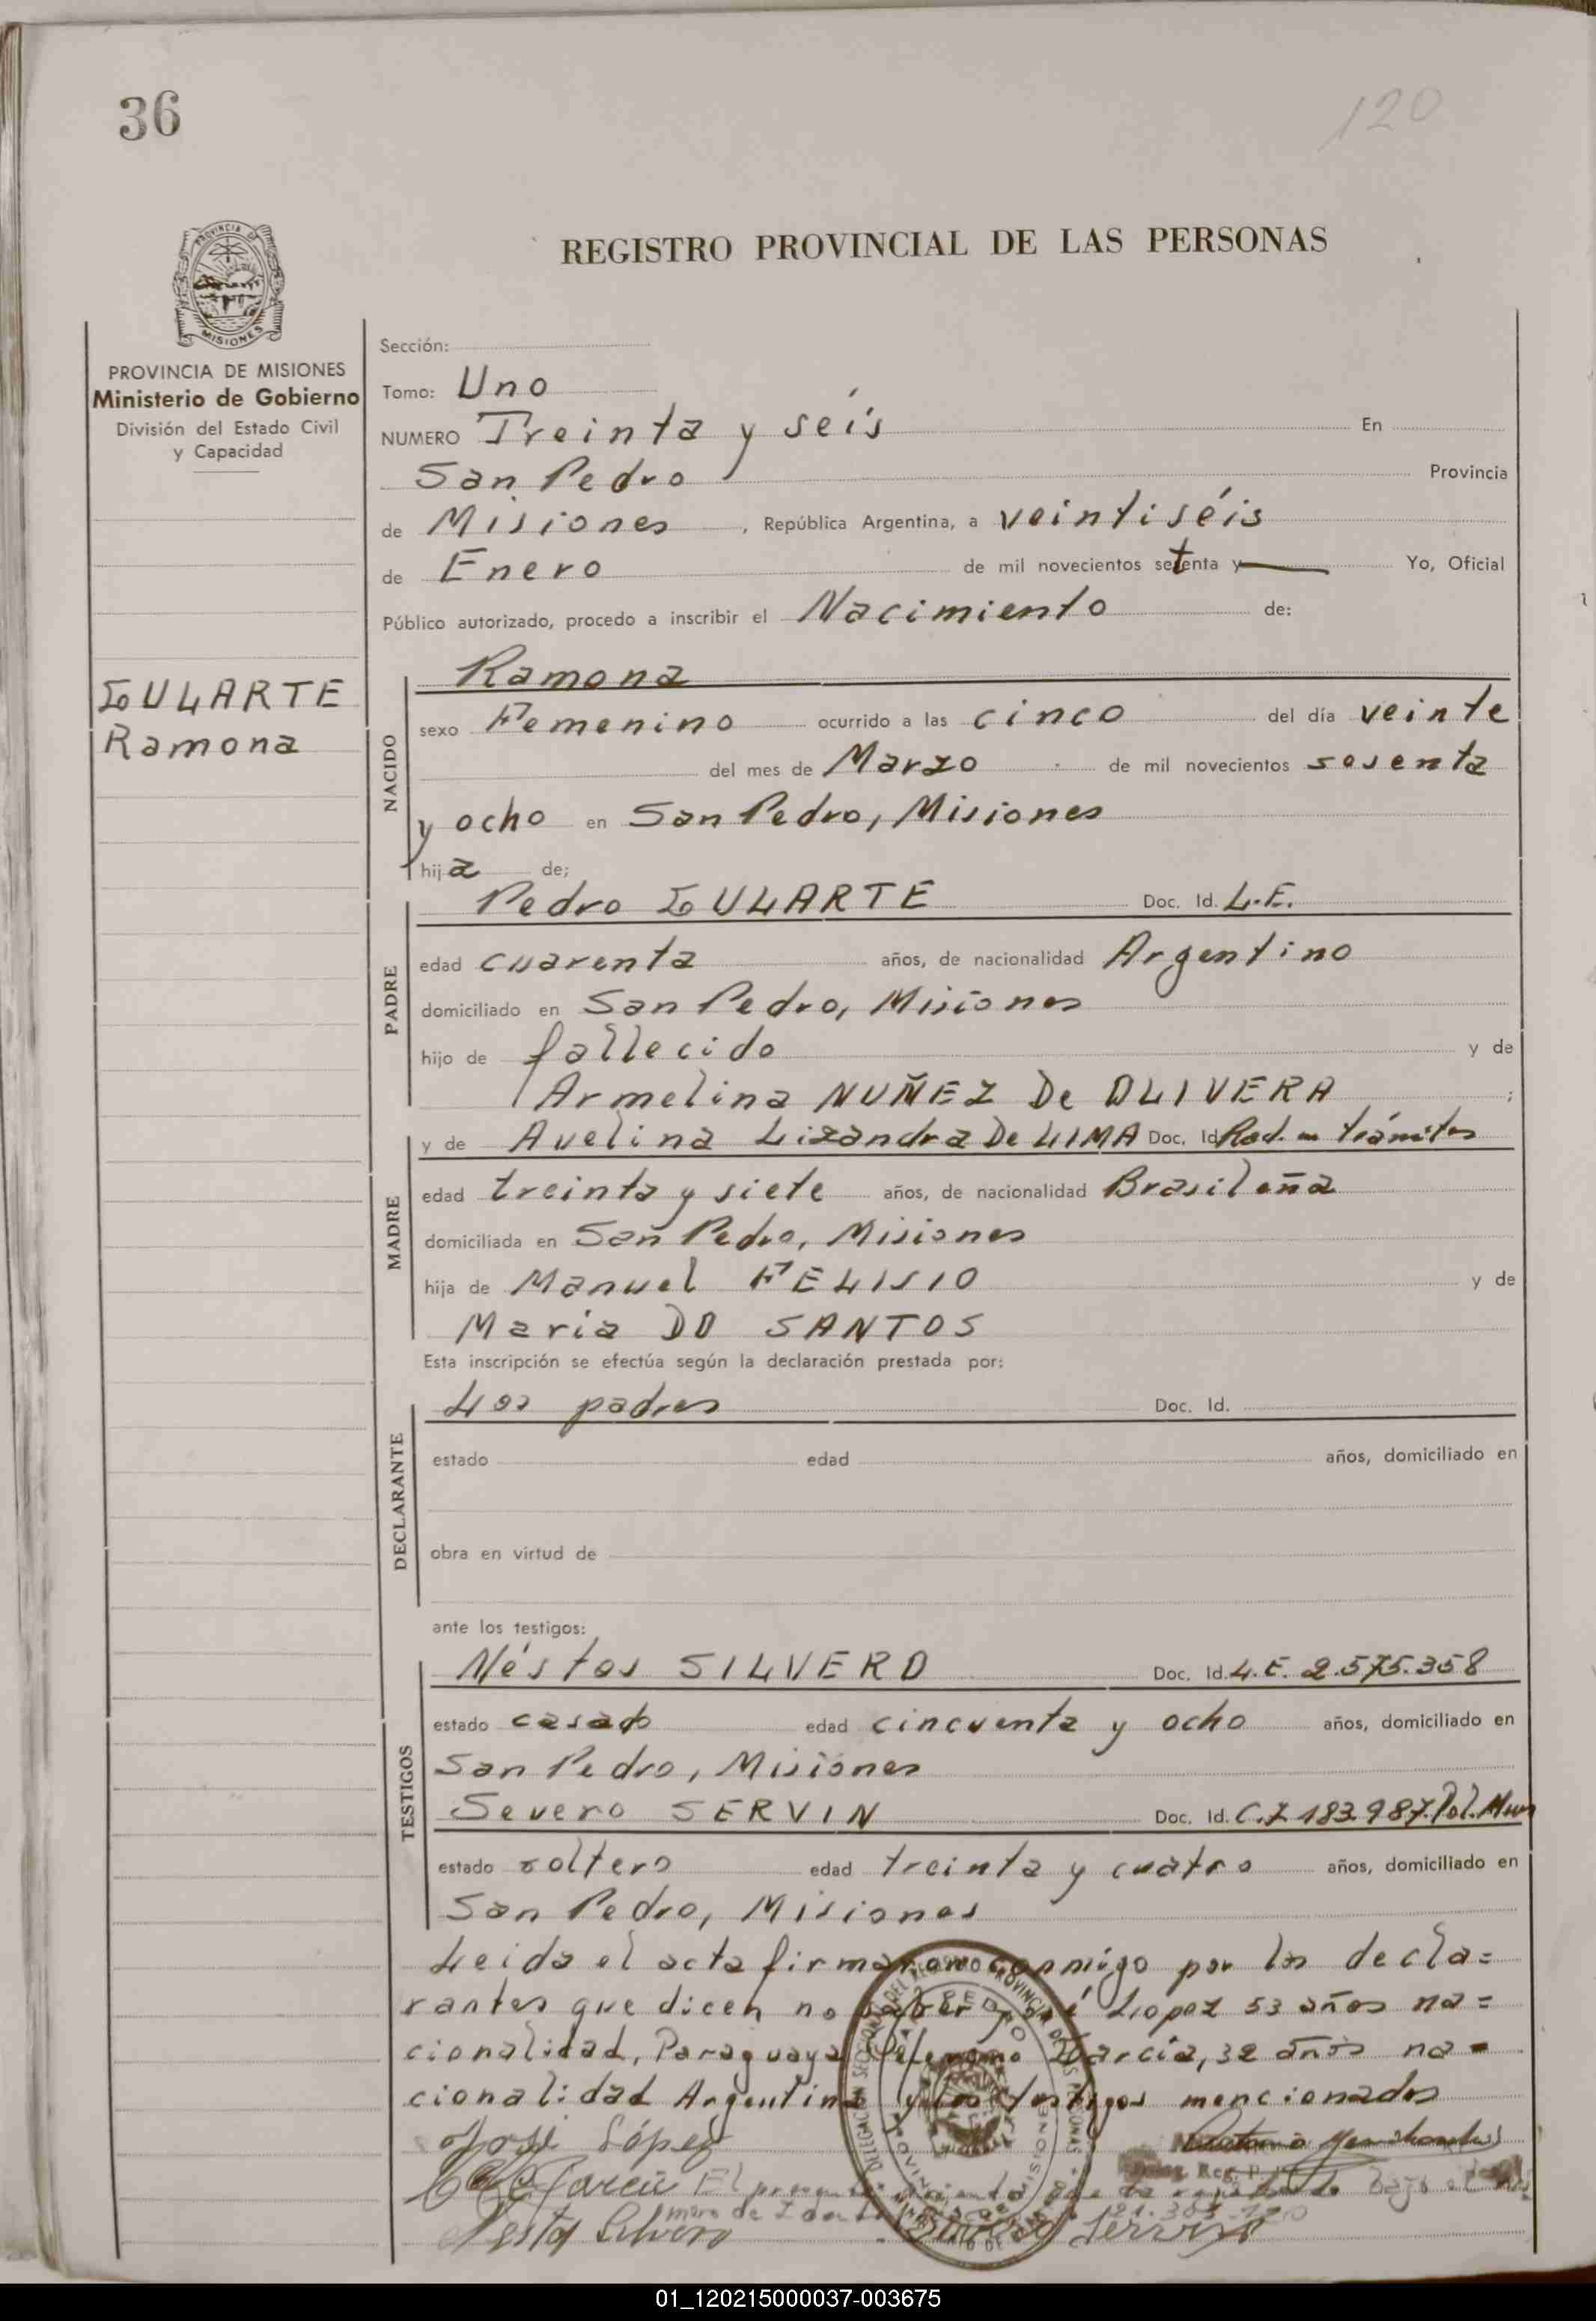 36
120
REGISTRO PROVINCIAL DE LAS PERSONAS
PROVINCIA DE MISIONES
Ministerio de Gobierno
División del Estado Civil
y Capacidad
Sección:
Tomo: Uno
NUMERO Treinta y séis En
San Pedro Provincia
de Misiones, República Argentina, a veintiséis
de Enero de mil novecientos setenta y Yo, Oficial
Público autorizado, procedo a inscribir el Nacimiento de:
ULARTE
Ramona
NACIDO
Ramona
sexo Femenino ocurrido a las cinco del día veinte
del mes de Marzo de mil novecientos sesenta
y ocho en San Pedro, Misiones
hija de;
PADRE
Pedro ULARTE Doc. Id. L.E.
edad cuarenta años, de nacionalidad Argentino
domiciliado en San Pedro, Misiones
hijo de fallecido y de
Armelina NUÑEZ De OLIVERA ;
MADRE
y de Avelina Lizandra De LIMA Doc. Id Rad. en trámites
edad treinta y siete años, de nacionalidad Brasileña
domiciliada en San Pedro, Misiones
hija de Manuel FELISIO y de
Maria DO SANTOS
Esta inscripción se efectúa según la declaración prestada por:
DECLARANTE
Los padres Doc. Id.
estado edad años, domiciliado en
obra en virtud de
ante los testigos:
TESTIGOS
Néstor SILVERO Doc. Id. L.E. 2.575.358
estado casado edad cincuenta y ocho años, domiciliado en
San Pedro, Misiones
Severo SERVIN Doc. Id. C.I 183.987. Pol. Mnes
estado soltero edad treinta y cuatro años, domiciliado en
San Pedro, Misiones
Leida el acta firmaron conmigo por los decla=
rantes que dicen no saber José Lopez 53 años na=
cionalidad, Paraguaya García, 32 años na=
cionalidad Argentina y los testigos mencionados
José López
García El bajo el
mero de
Nestor Silvero
01_120215000037-003675